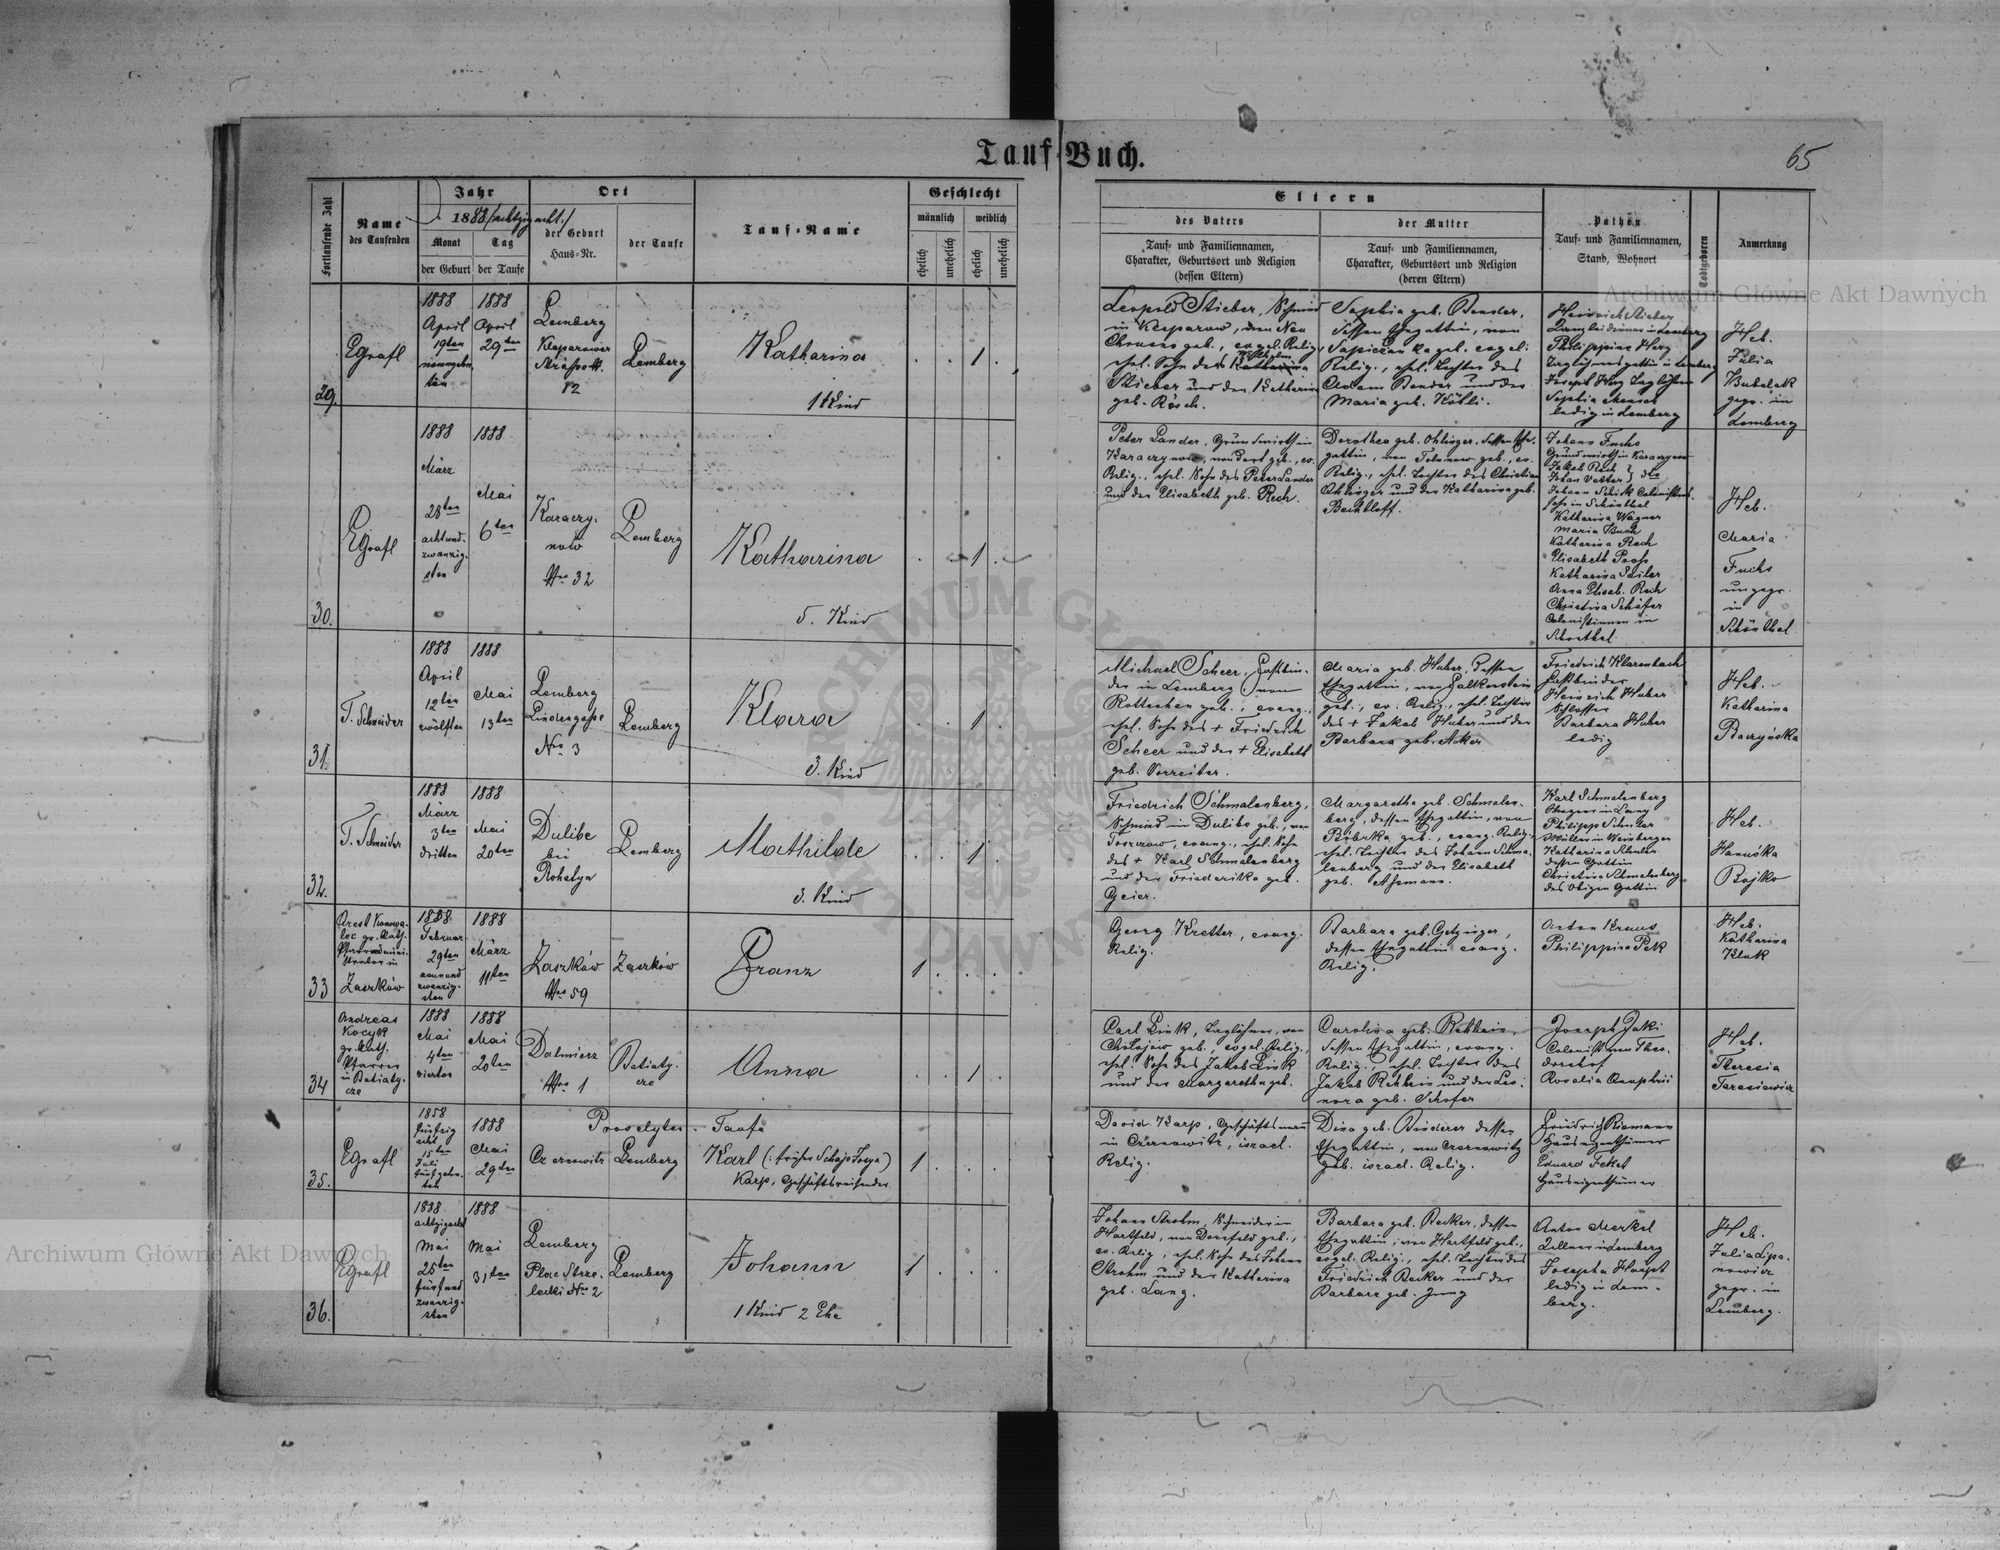 Tauf-Buch.
65
Fortlaufende Zahl
Name
des Taufenden
Jahr
1888 /achtzigacht./
Monat
der Geburt
Tag
der Taufe
Ort
der Geburt
Haus-Nr.
der Taufe
Tauf-Name
Geschlecht
männlich
weiblich
ehelich
unehelich
ehelich
unehelich
Eltern
des Vaters
Tauf- und Familiennamen,
Charakter, Geburtsort und Religion
(dessen Eltern)
der Mutter
Tauf- und Familiennamen,
Charakter, Geburtsort und Religion
(deren Eltern)
Pathen
Tauf- und Familiennamen,
Stand, Wohnort
Todtgeboren
Anmerkung
29.
Egrafl
1888
April
19ten
1888
April
29ten
Lemberg
12
Lemberg
Katharina
1 Kind
1
Leopold Stieber, Schmied
in Kleparow,
geb., evgel. Relig.,
ehel. Sohn des Wilhelm
Stieber und der Katharina
geb. Rösch.
Sophia geb. Bender,
dessen Ehegattin, von
Sapiezanka geb. evgel.
Relig., ehel. Tochter des
Adam Bender und der
Maria geb. Köbli.
Heinrich Stieber
in Lemberg
Philippine Herz
in Lemberg
Joseph Herz Taglöhner
Sophia
ledig in Lemberg
Heb.
Julia
Bubelak
gepr. in
Lemberg
30.
Egrafl
1888
März
28ten
achtund-
zwanzig-
sten
1888
Mai
6ten
Karaczy-
now
Nro 32
Lemberg
Katharina
5. Kind
1
Peter Lander, Grundwirth in
Karaczynow, von dort geb., ev.
Relig., ehel. Sohn des Peter Lander
und der Elisabeth geb. Rech.
Dorothea geb. Ohlinger, dessen Ehe-
gattin, von geb., ev.
Relig., ehel. Tochter des Christian
Ohlinger und der Katharina geb.
Bechtloff.
Johann Fuchs
Grundwirth in Karaczynow
Jakob Rech
Johan Vetter } dto
Johann Schick Colonisten-
sohn in Schönthal
Katharina Wagner
Maria Buch
Katharina Rech
Elisabeth
Katharina Seiler
Anna Elisab. Rech
Christina Schäfer
Colonistinnen in
Schönthal
Heb.
Maria
Fuchs
ungepr.
in
Schönthal
31.
T. Schneider
1888
April
12ten
zwölften
1888
Mai
13ten
Lemberg
Lindengasse
Nro 3
Lemberg
Klara
3. Kind
1
Michael Scheer, Fassbin-
der in Lemberg, von
Rottenhan geb., evang.,
ehel. Sohn des + Friedrich
Scheer und der + Elisabeth
geb. Vorreiter.
Maria geb. Huber, dessen
Ehegattin, von Falkenstein
geb., ev. Relig., ehel. Tochter
des + Jakob Huber und der
Barbara geb. Acker
Friedrich Klarenbach
Fassbinder
Heinrich Huber
Schlosser
Barbara Huber
ledig
Heb.
Katharina
Baczyńska
32.
T. Schneider
1888
März
3ten
dritten
1888
Mai
20ten
Dulibe
bei
Rohatyn
Lemberg
Mathilde
3. Kind
1
Friedrich Schmalenberg,
Schmied in Dulibe geb., von
evang., ehel. Sohn
des + Karl Schmalenberg
und der Friederika geb.
Geier.
Margaretha geb. Schmalen-
berg, dessen Ehegattin, von
Bóbrka geb., evang. Relig.,
ehel. Tochter des Johann Schma-
lenberg und der Elisabeth
geb. Assmann.
Karl Schmalenberg
Philipp Schuster
Müller in Weinbergen
Katharina Schuster
dessen Gattin
Christina Schmalenberg
des Obigen Gattin
Heb.
Hanuśka
Bojko
33
gr. kath.
Pfarradmini-
strator in
Zaszków
1888
Februar
29ten
neunund
zwanzig-
sten
1888
März
11ten
Zaszków
Nro 59
Zaszków
Franz
1
Georg Kretter, evang.
Relig.
Barbara geb. Getzinger,
dessen Ehegattin evang.
Relig.
Anton Kraus
Philippine Pek
Heb.
Katharina
Kluk
34
Andreas
Kocyk
gr. kath.
Pfarrer
in Batiaty-
cze
1888
Mai
4ten
vierten
1888
Mai
20ten
Dalnicz
Nro 1
Batiaty-
cze
Anna
1
Carl Link, Taglöhner, von
Chołojów geb., evgel. Relig.,
ehel. Sohn des Jakob Link
und der Margaretha geb.
Carolina geb. Rehbein,
dessen Ehegattin, evang.
Relig., ehel. Tochter des
Jakob Rehbein und der Leo-
nora geb. Schofer
Joseph Jaki
Colonist von Theo-
dorshof
Rosalia
Heb.
Theresia
Tarasiewicz
35.
Egrafl
1858
fünfzig
acht
15ten
Juli
fünfzehn-
ten
1888
Mai
29ten
Proselyten-Taufe
Czernowitz
Lemberg
Karl (: früher Schaje Josua)
Karp, Geschäftsreisender
1
David Karp, Geschäftsmann
in Czernowitz, israel.
Relig.
Dina geb. Binderer dessen
Ehegattin, von Czernowitz
geb. israel. Relig.
Friedrich Riemann
Hauseigenthümer
Eduard Feket
Hauseigenthümer
36.
Egrafl
1888
achtzigacht
Mai
25ten
fünfund
zwanzig-
sten
1888
Mai
31ten
Lemberg
Plac Strze-
lecki Nro 2
Lemberg
Johann
1 Kind 2 Ehe
1
Johann Strohm, Schneider in
Hartfeld, von Dornfeld geb.,
ev. Relig., ehel. Sohn des Johann
Strohm und der Katharina
geb. Lang.
Barbara geb. Becker, dessen
Ehegattin, von Hartfeld geb.,
evgel. Relig., ehel. Tochter des
Friedrich Becker und der
Barbara geb. Jung
Anton Merkel
Kellner in Lemberg
Josepha Haupt
ledig in Lem-
berg.
Heb.
Julia Lipa-
nowicz
gepr. in
Lemberg.
Archiwum Główne Akt Dawnych
Archiwum Główne Akt Dawnych
ARCHIWUM GŁÓWNE AKT DAWNYCH